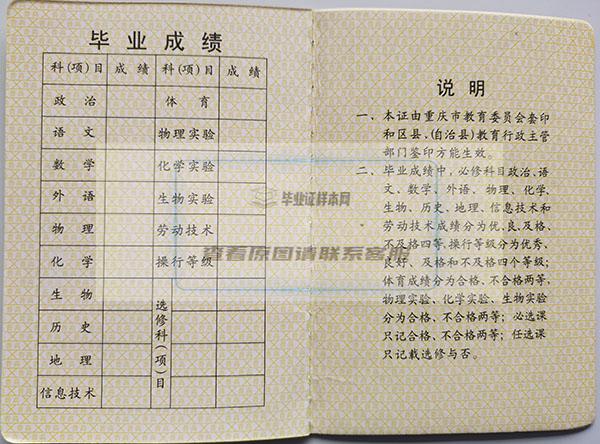 毕业成绩
科(项)目 成绩 科(项)目 成绩
政治 体育
语文 物理实验
数学 化学实验
外语 生物实验
物理 劳动技术
化学 操行等级
生物 选修科(项)目
历史
地理
信息技术
说明
一、本证由重庆市教育委员会套印
和区县、(自治县)教育行政主管
部门签印方能生效。
二、毕业成绩中，必修科目政治、语
文、数学、外语、物理、化学、
生物、历史、地理、信息技术和
劳动技术成绩分为优、良、及格、
不及格四等，操行等级分为优秀、
良好、及格和不及格四个等级；
体育成绩分为合格、不合格两等，
物理实验、化学实验、生物实验
分为合格、不合格两等；必选课
只记合格、不合格两等；任选课
只记载选修与否。
毕业证样本网
查看原图请联系客服